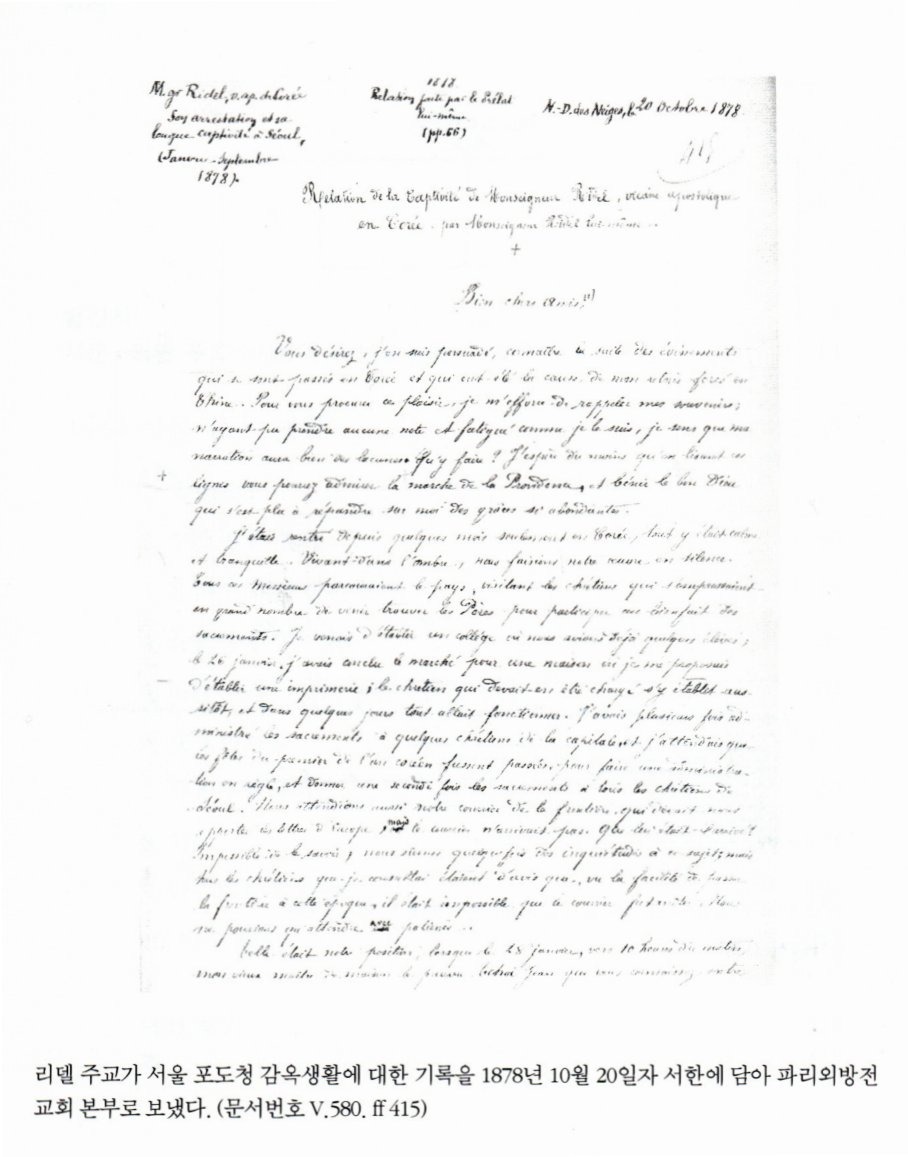 Mgr Ridel, v. ap. de Corée
Son arrestation et sa
longue captivité à Séoul,
(Janvier - Septembre
1878).
1878
Relation faite par le Prélat
lui-même
(pp. 66)
N.-D. des Neiges, le 20 Octobre 1878.
415
Relation de la Captivité de Monseigneur Ridel, vicaire apostolique
en Corée par Monseigneur Ridel lui-même.
+
Bien chers amis,
Vous désirez, j'en suis persuadé, connaître la suite des événements
qui se sont passés en Corée et qui ont été la cause de mon retour forcé en
Chine. Pour vous procurer ce plaisir, je m'efforce de rappeler mes souvenirs;
n'ayant pu prendre aucune note et fatigué comme je le suis, je sens que ma
narration aura bien des lacunes. Qu'y faire? J'espère du moins qu'en lisant ces
+
lignes vous pourrez admirer la marche de la Providence, et bénir le bon Dieu
qui s'est plu à répandre sur moi des grâces si abondantes.
J'étais rentré depuis quelques mois seulement en Corée, tout y était calme
et tranquille. Vivant dans l'ombre, nous faisions notre œuvre en silence.
Tous ces messieurs parcouraient le pays, visitant les chrétiens qui s'empressaient
en grand nombre de venir trouver les Pères pour participer au bienfait des
sacrements. Je venais d'établir un collège où nous avions déjà quelques élèves;
le 26 janvier, j'avais conclu le marché pour une maison où je me proposais
d'établir une imprimerie; le chrétien qui devait en être chargé s'y établit aus-
sitôt, et dans quelques jours tout allait fonctionner. J'avais plusieurs fois ad-
ministré les sacrements à quelques chrétiens de la capitale et j'attendais que
les fêtes du premier de l'an coréen fussent passées, pour faire une administra-
tion en règle, et donner une seconde fois les sacrements à tous les chrétiens de
Séoul. Nous attendions aussi notre courrier de la frontière, qui devait nous
apporter les lettres d'Europe, mais le courrier n'arrivait pas. Que lui était-il arrivé?
Impossible de le savoir; nous étions quelquefois des inquiétudes à ce sujet; mais
tous les chrétiens que je consultai étaient d'avis que, vu la facilité de passer
la frontière à cette époque, il était impossible que le courrier fut arrêté. Nous
ne pouvions qu'attendre avec patience.
Telle était notre position, lorsque le 28 janvier, vers 10 heures du matin,
mon vieux maître de maison le Jean que vous connaissez, entre
리델 주교가 서울 포도청 감옥생활에 대한 기록을 1878년 10월 20일자 서한에 담아 파리외방전
교회 본부로 보냈다. (문서번호 V.580. ff 415)